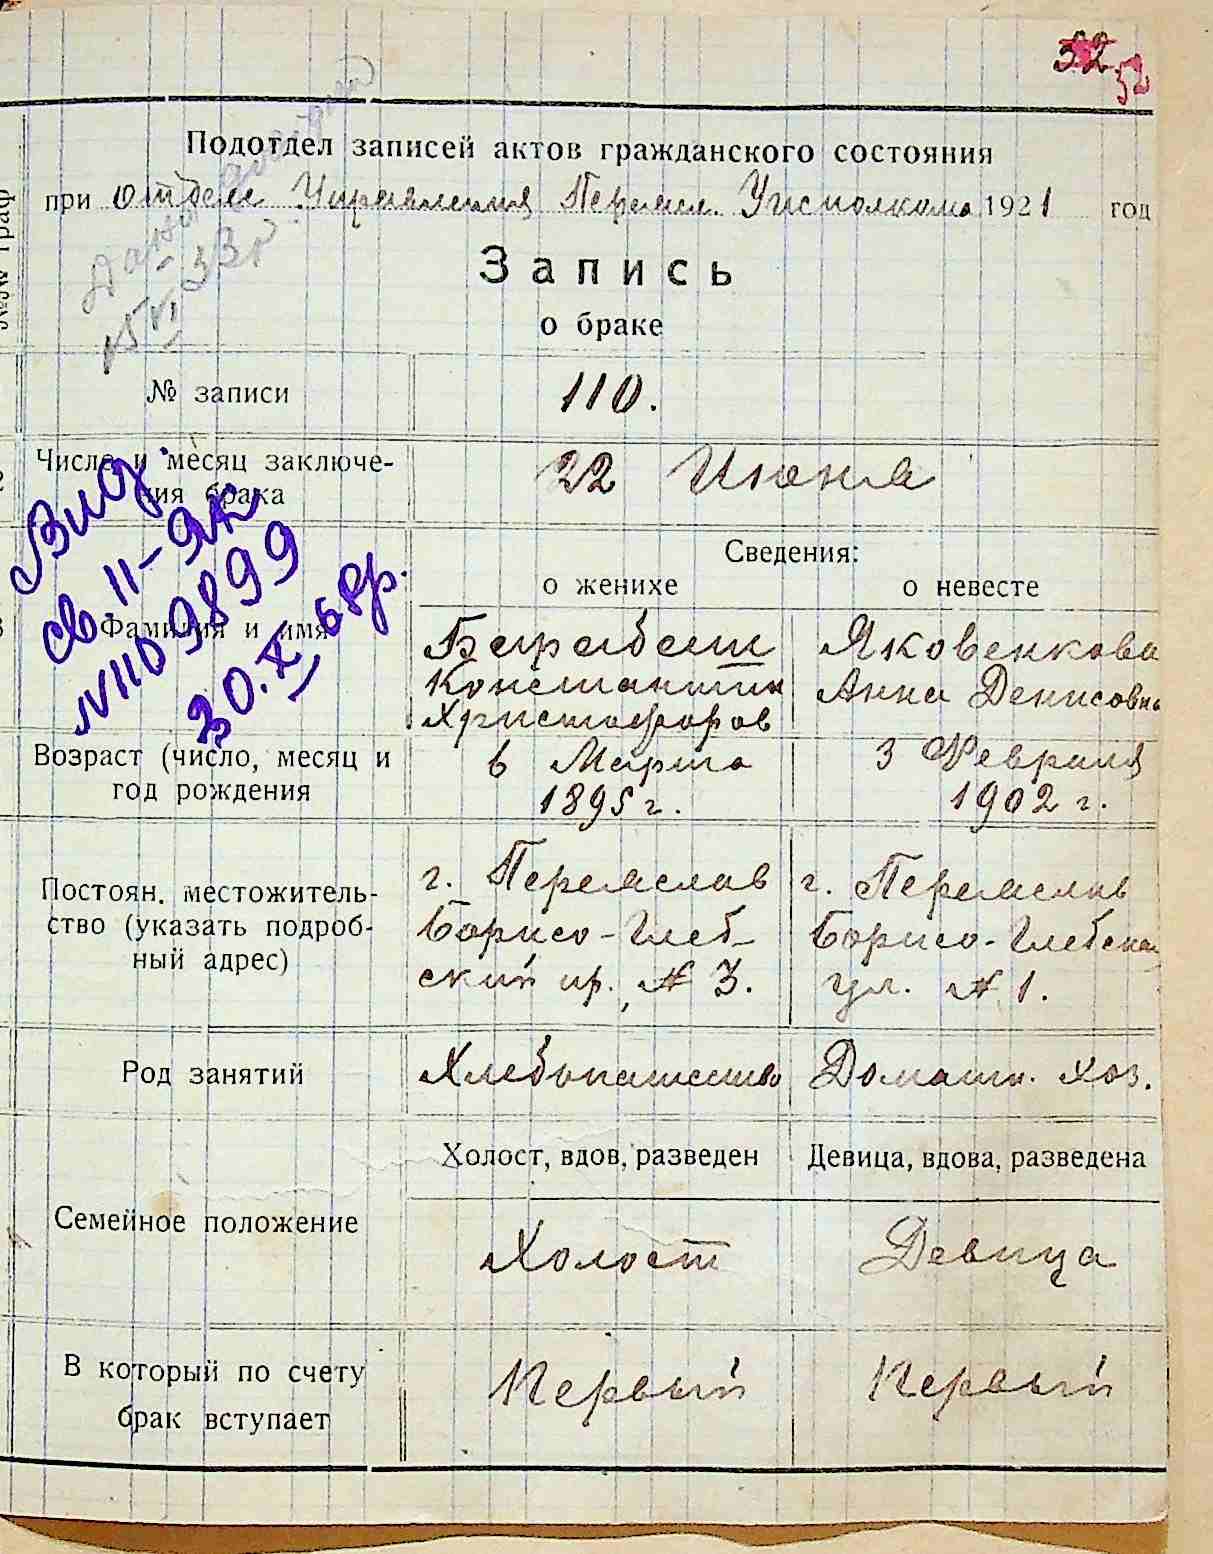 52
52
Подотдел записей актов гражданского состояния
при Отделе Управления Переясл. Уисполкома 1921 год
№№ граф
Запись
о браке
№ записи
110.
Число и месяц заключе-
ния брака
22 Июня
Вид.
св. II-ЯК
№1109899
30.XI 68р.
Сведения:
о женихе
о невесте
Фамилия и имя
Барабаш
Константин
Христофоров
Яковенкова
Анна Денисовна
Возраст (число, месяц и
год рождения
6 Марта
1895 г.
3 Февраля
1902 г.
Постоян. местожитель-
ство (указать подроб-
ный адрес)
г. Переяслав
Борисо-Глеб-
ский пр., № 3.
г. Переяслав
Борисо-Глебская
ул. № 1.
Род занятий
Хлебопашество
Домашн. хоз.
Семейное положение
Холост, вдов, разведен
Девица, вдова, разведена
Холост
Девица
В который по счету
брак вступает
Первый
Первый